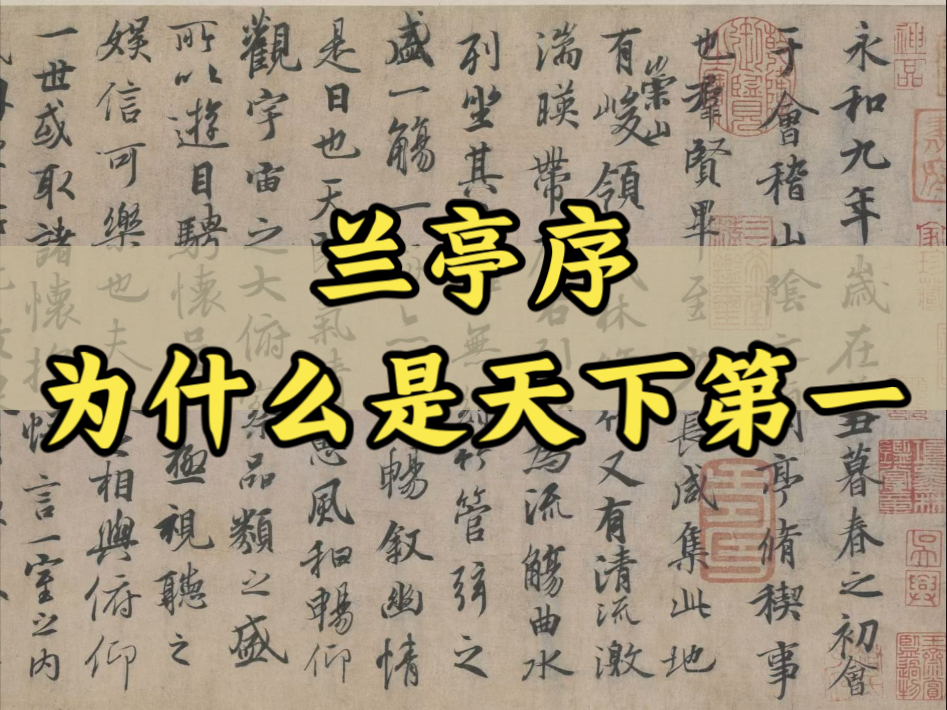 兰亭序
为什么是天下第一
永和九年歲在丑暮春之初會
于會稽山陰亭脩禊事
也群賢畢至長咸集此地
有崇山峻領林竹又有清流激
湍暎帶右引為流觴曲水
列坐其無竹管弦之
盛一觴一暢叙幽情
是日也天氣惠風和暢仰
觀宇宙之大俯察品類之盛
所以遊目騁懷極視聽之
娛信可樂也夫之相與俯仰
一世或取諸懷抱悟言一室之內